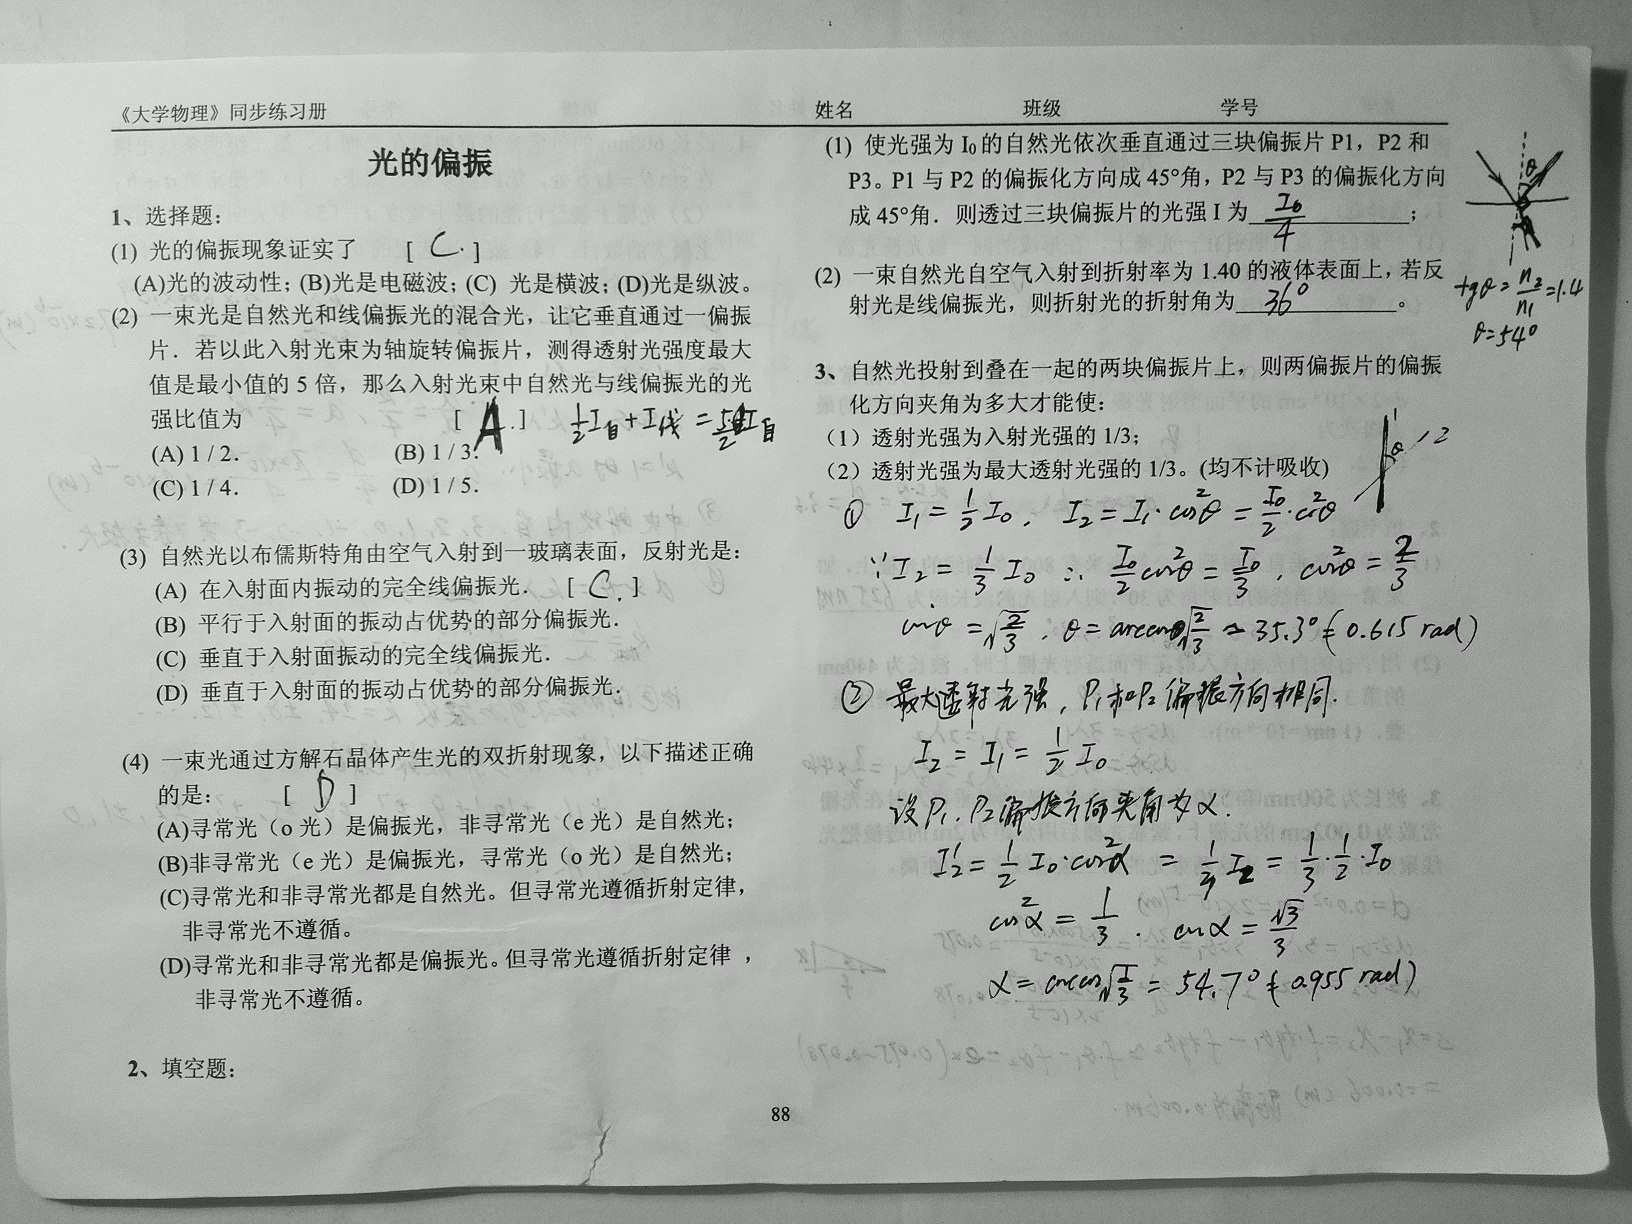 《大学物理》同步练习册
姓名 班级 学号
光的偏振
1、选择题：
(1) 光的偏振现象证实了 [ C. ]
(A)光的波动性；(B)光是电磁波；(C) 光是横波；(D)光是纵波。
(2) 一束光是自然光和线偏振光的混合光，让它垂直通过一偏振
片．若以此入射光束为轴旋转偏振片，测得透射光强度最大
值是最小值的 5 倍，那么入射光束中自然光与线偏振光的光
强比值为 [ A. ] ½I自 + I线 = 5/2 I自
(A) 1 / 2． (B) 1 / 3．
(C) 1 / 4． (D) 1 / 5．
(3) 自然光以布儒斯特角由空气入射到一玻璃表面，反射光是：
(A) 在入射面内振动的完全线偏振光． [ C. ]
(B) 平行于入射面的振动占优势的部分偏振光．
(C) 垂直于入射面振动的完全线偏振光．
(D) 垂直于入射面的振动占优势的部分偏振光．
(4) 一束光通过方解石晶体产生光的双折射现象，以下描述正确
的是： [ D ]
(A)寻常光（o 光）是偏振光，非寻常光（e 光）是自然光；
(B)非寻常光（e 光）是偏振光，寻常光（o 光）是自然光；
(C)寻常光和非寻常光都是自然光。但寻常光遵循折射定律，
非寻常光不遵循。
(D)寻常光和非寻常光都是偏振光。但寻常光遵循折射定律，
非寻常光不遵循。
2、填空题：
(1) 使光强为 I₀ 的自然光依次垂直通过三块偏振片 P1，P2 和
P3。P1 与 P2 的偏振化方向成 45°角，P2 与 P3 的偏振化方向
成 45°角．则透过三块偏振片的光强 I 为 I₀/4 ；
θ
(2) 一束自然光自空气入射到折射率为 1.40 的液体表面上，若反
射光是线偏振光，则折射光的折射角为 36° 。
tgθ = n₂/n₁ = 1.4
θ = 54°
3、自然光投射到叠在一起的两块偏振片上，则两偏振片的偏振
化方向夹角为多大才能使：
（1）透射光强为入射光强的 1/3；
（2）透射光强为最大透射光强的 1/3。(均不计吸收)
1 θ 2
① I₁ = ½I₀, I₂ = I₁·cos²θ = I₀/2·cos²θ
∵ I₂ = 1/3 I₀ ∴ I₀/2 cos²θ = I₀/3, cos²θ = 2/3
cosθ = √(2/3), θ = arccos√(2/3) ≈ 35.3° (0.615 rad)
② 最大透射光强，P₁和P₂偏振方向相同.
I₂ = I₁ = ½ I₀
设P₁、P₂偏振方向夹角为α.
I₂' = ½ I₀·cos²α = 1/3 I₂ = 1/3·1/2·I₀
cos²α = 1/3. cosα = √3/3
α = arccos√(1/3) = 54.7° (0.955 rad)
88